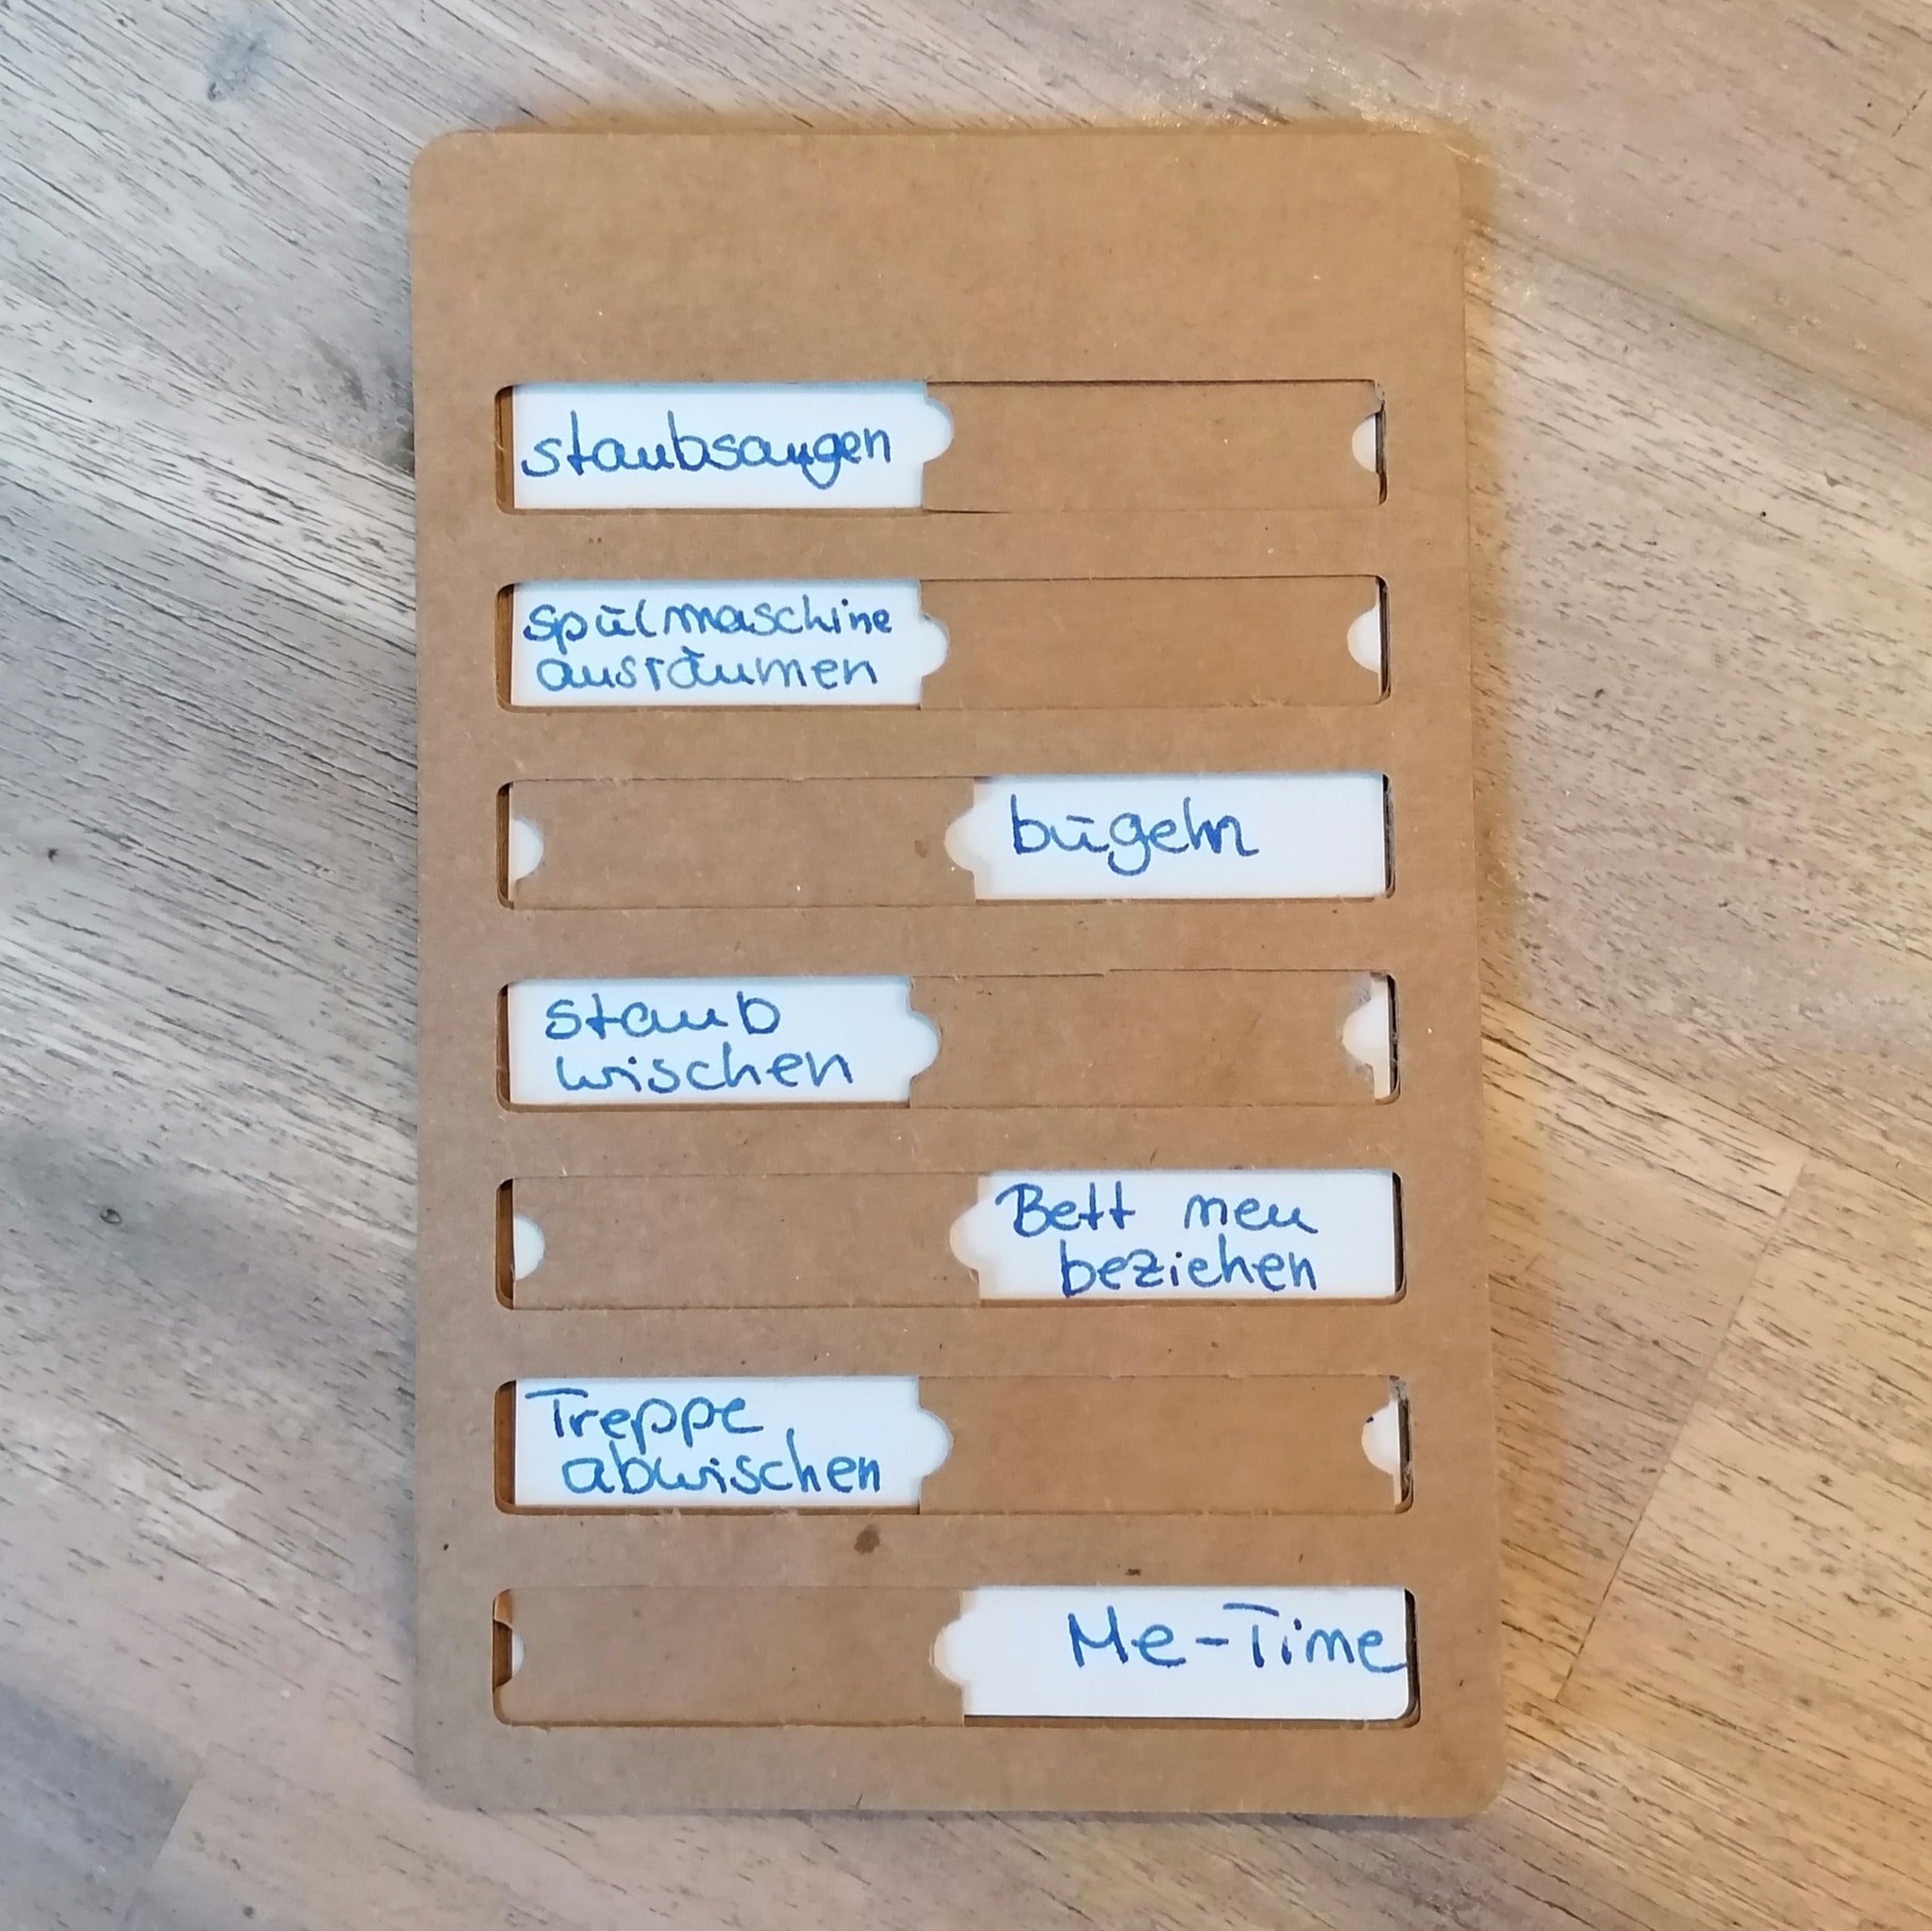 staubsaugen
spülmaschine
ausräumen
bügeln
staub
wischen
Bett neu
beziehen
Treppe
abwischen
Me-Time